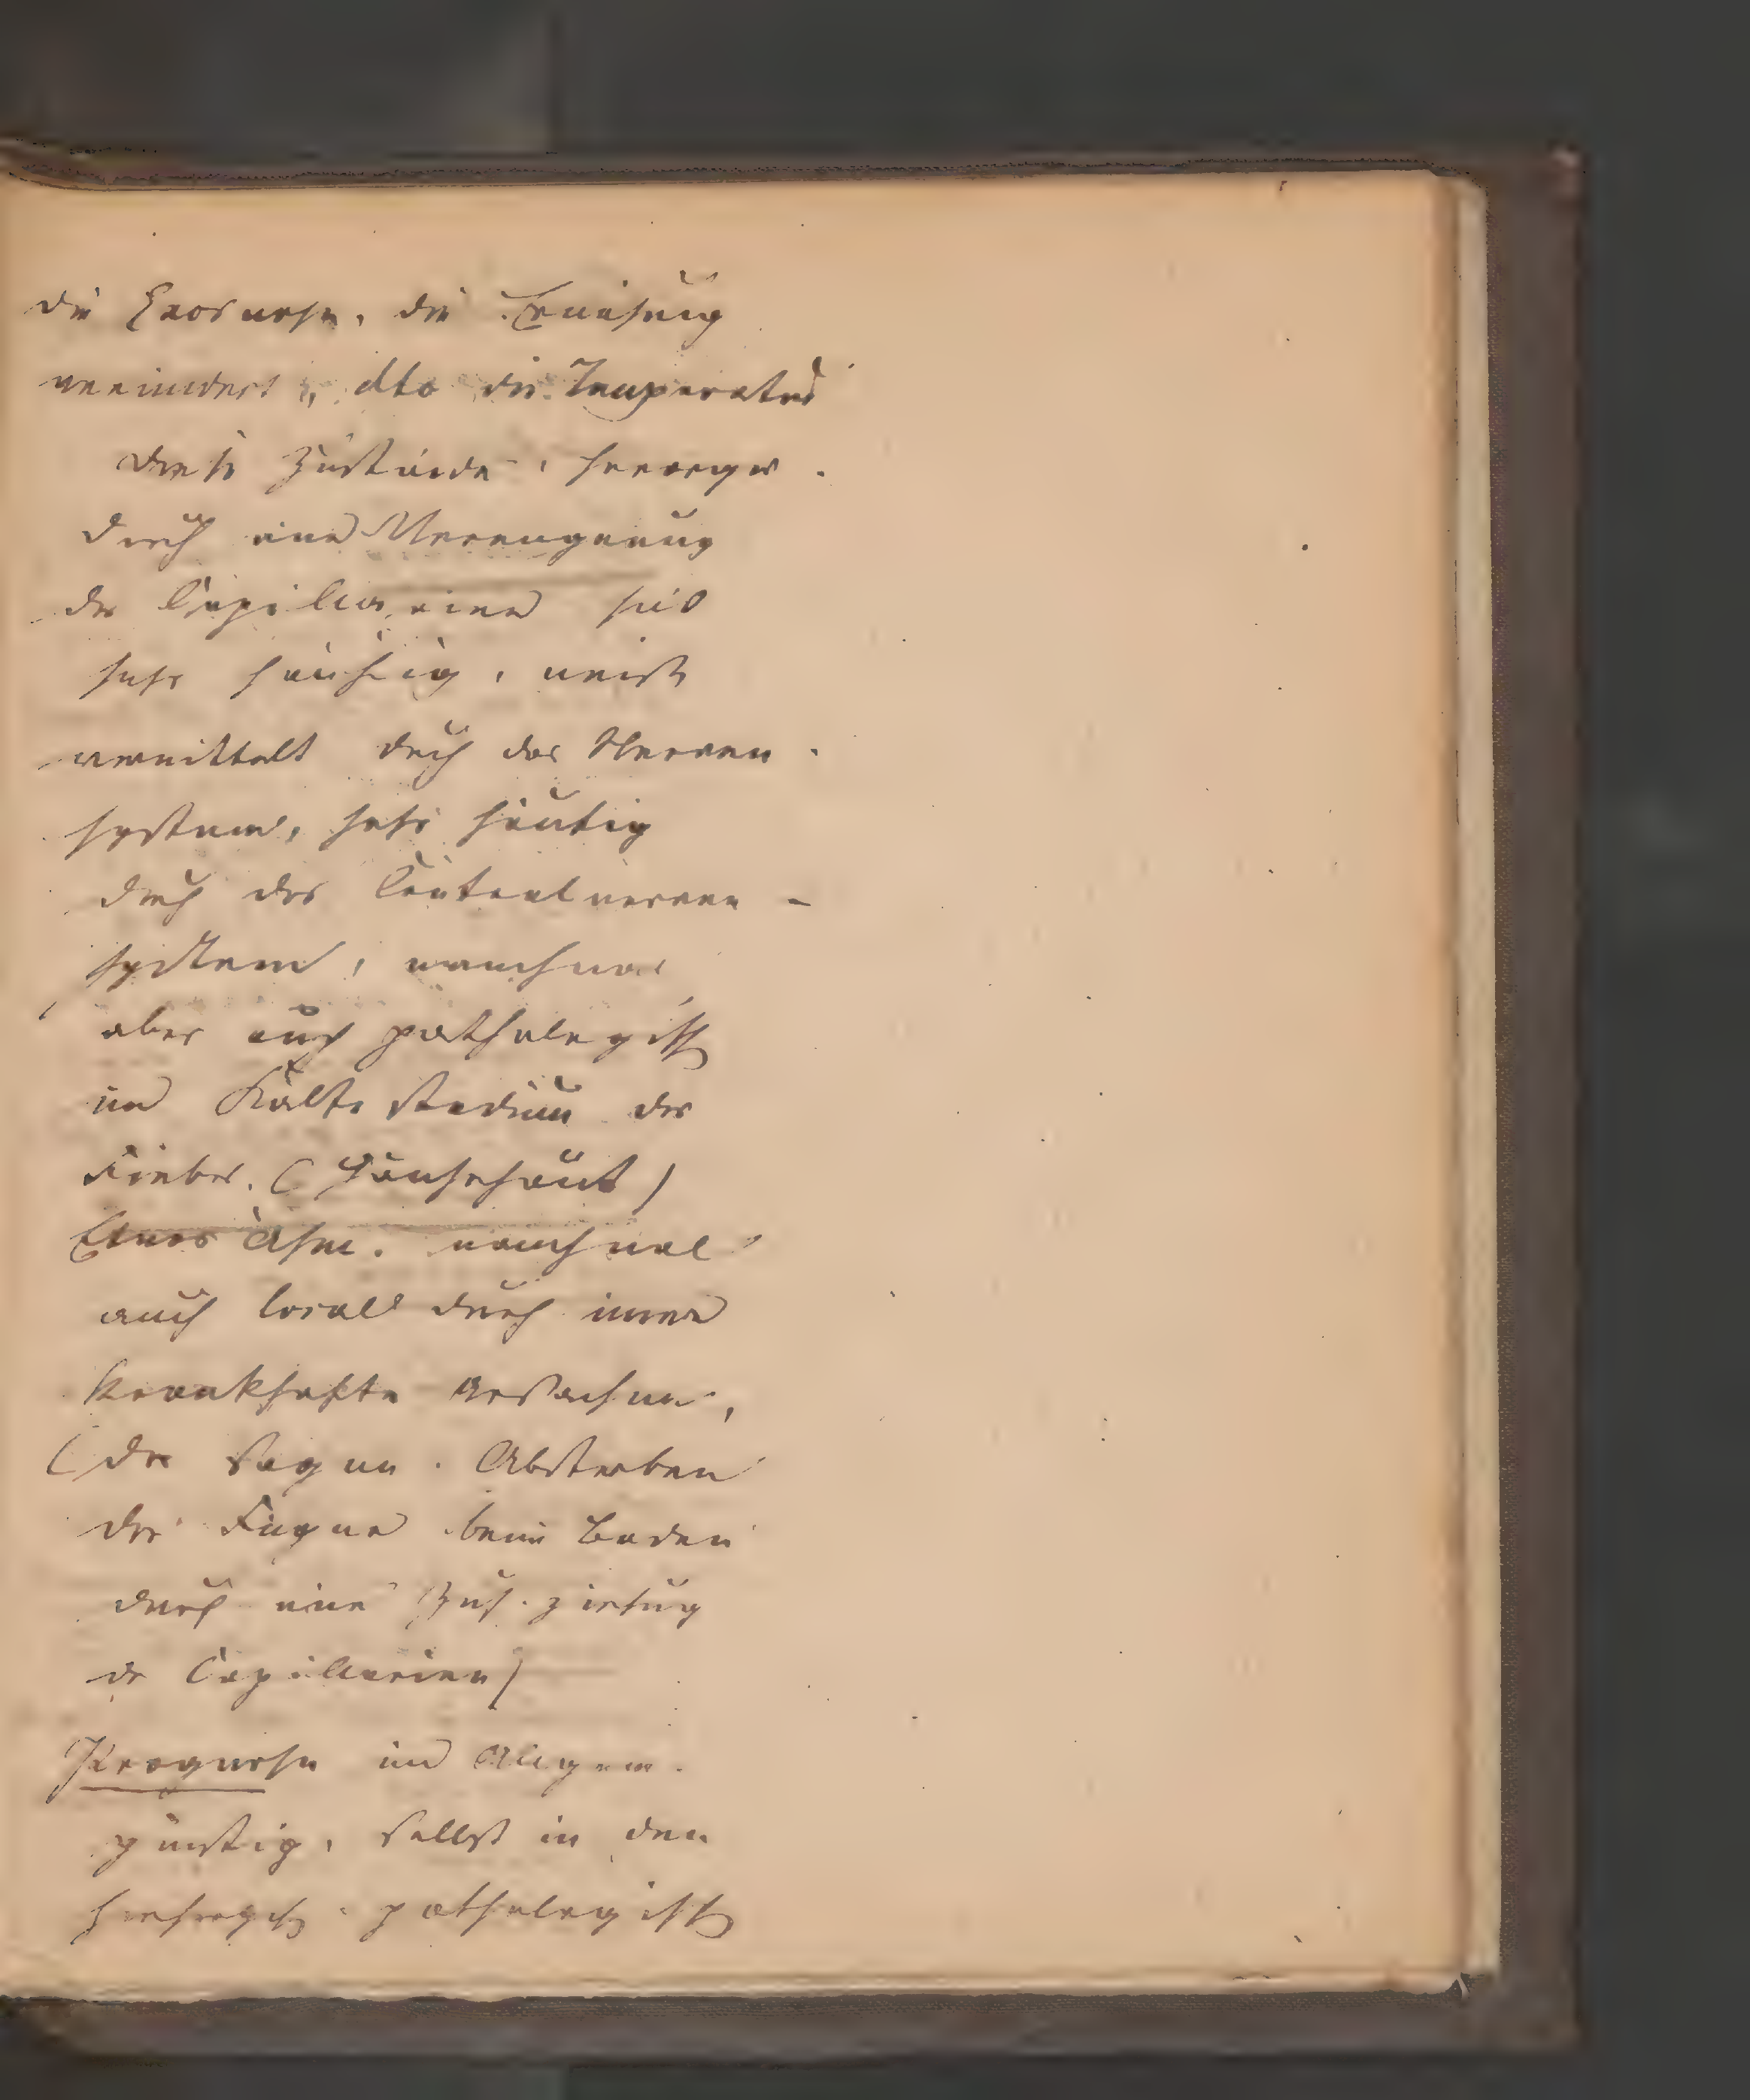 die Exosmose, die Ernährung
vermindert, dto die Temperatur
diese Zustände, hervorger.
durch eine Verengerung
der Capillarien sind
sehr häufig, meist
vermittelt durch das Nerven-
system, sehr häufig
durch das Centralnerven-
system, manchmal
aber auch pathologisch
im Kältestadium der
Fieber. (Gänsehaut)
Etwas Ähnl. manchmal
auch local durch
krankhafte Ursachen,
(das sogen. Absterben
der Finger beim Baden
durch eine Zus.ziehung
der Capillarien)
Prognose im Allgem.
günstig, selbst in den
pathologisch